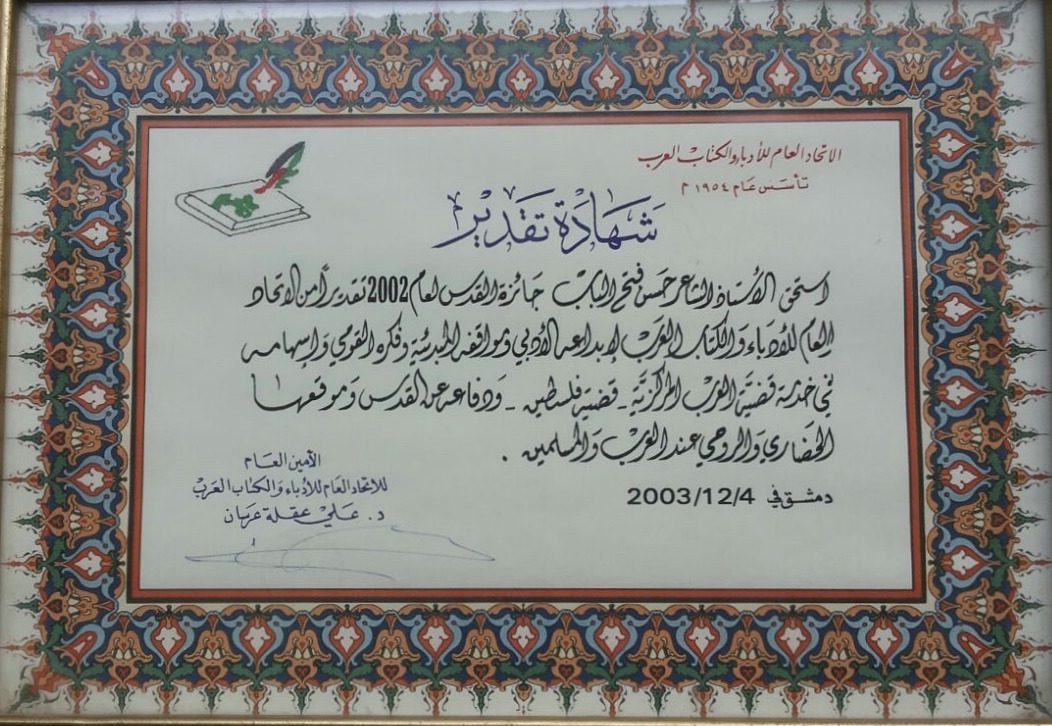 الاتحاد العام للأدباء والكتاب العرب
تأسس عام ١٩٥٤ م
شهادة تقدير
استحق الأستاذ الشاعر حسن فتح الباب جائزة القدس لعام 2002 تقديراً من الاتحاد
العام للأدباء والكتاب العرب لإبداعه الأدبي ومواقفه المبدئية وفكره القومي وإسهامه
في خدمة قضية العرب المركزية - قضية فلسطين - ودفاعه عن القدس وموقعها
الحضاري والروحي عند العرب والمسلمين .
دمشق في 2003/12/4
الأمين العام
للاتحاد العام للأدباء والكتاب العرب
د. علي عقلة عرسان